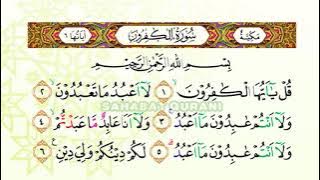 مكية سورة الكفرون اياتها ٦
بِسْمِ اللَّهِ الرَّحْمَٰنِ الرَّحِيمِ
قُلْ يَٰٓأَيُّهَا الْكَٰفِرُونَ ۝١ لَآ أَعْبُدُ مَا تَعْبُدُونَ ۝٢
وَلَآ أَنتُمْ عَٰبِدُونَ مَآ أَعْبُدُ ۝٣ وَلَآ أَنَا۠ عَابِدٌ مَّا عَبَدتُّمْ ۝٤
وَلَآ أَنتُمْ عَٰبِدُونَ مَآ أَعْبُدُ ۝٥ لَكُمْ دِينُكُمْ وَلِيَ دِينِ ۝٦
SAHABAT QURANI